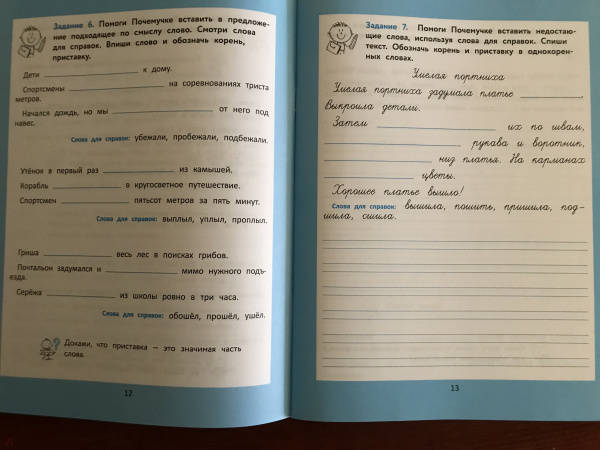 Задание 6. Помоги Почемучке вставить в предложе-
ние подходящее по смыслу слово. Смотри слова
для справок. Впиши слово и обозначь корень,
приставку.
Дети ____ к дому.
Спортсмены ____ на соревнованиях триста
метров.
Начался дождь, но мы ____ от него под
навес.
Слова для справок: убежали, пробежали, подбежали.
Утёнок в первый раз ____ из камышей.
Корабль ____ в кругосветное путешествие.
Спортсмен ____ пятьсот метров за пять минут.
Слова для справок: выплыл, уплыл, проплыл.
Гриша ____ весь лес в поисках грибов.
Почтальон задумался и ____ мимо нужного подъ-
езда.
Серёжа ____ из школы ровно в три часа.
Слова для справок: обошёл, прошёл, ушёл.
Докажи, что приставка — это значимая часть
слова.
12
Задание 7. Помоги Почемучке вставить недостаю-
щие слова, используя слова для справок. Спиши
текст. Обозначь корень и приставку в однокорен-
ных словах.
Умелая портниха
Умелая портниха задумала платье ____.
Выкроила детали.
Затем ____ их по швам,
____ рукава и воротник,
____ низ платья. На карманах
____ цветы.
Хорошее платье вышло!
Слова для справок: вышила, пошить, пришила, под-
шила, сшила.
13